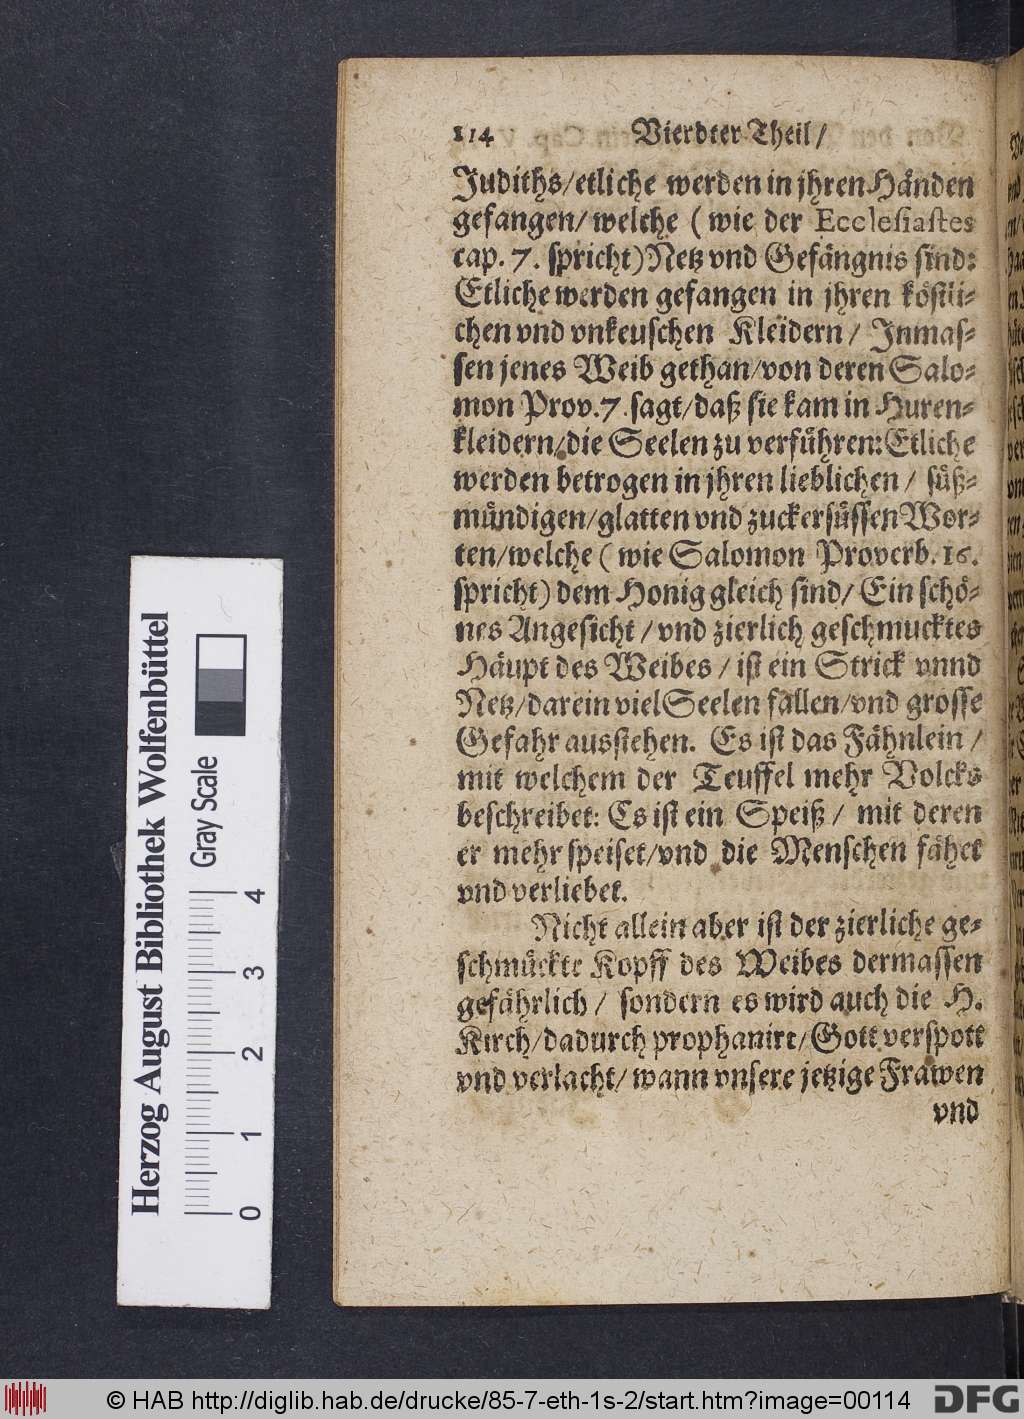 114 Vierdter Theil/
Judiths/etliche werden in jhren Händen
gefangen/ welche ( wie der Ecclesiastes
cap. 7. spricht) Netz vnd Gefängnis sind:
Etliche werden gefangen in jhren köstli-
chen vnd vnkeuschen Kleidern/ Inmas-
sen jenes Weib gethan/von deren Salo-
mon Prov. 7. sagt/daß sie kam in Huren-
kleidern/die Seelen zu verführen: Etliche
werden betrogen in jhren lieblichen/ süß-
mündigen/glatten vnd zuckersüssen Wor-
ten/welche ( wie Salomon Proverb. 16.
spricht) dem Honig gleich sind/ Ein schö-
nes Angesicht/ vnd zierlich geschmucktes
Häupt des Weibes/ ist ein Strick vnnd
Netz/darein viel Seelen fallen/vnd grosse
Gefahr ausstehen. Es ist das Fähnlein/
mit welchem der Teuffel mehr Volcks
beschreibet: Es ist ein Speiß/ mit deren
er mehr speiset/vnd die Menschen fähet
vnd verliebet.
Nicht allein aber ist der zierliche ge-
schmückte Kopff des Weibes dermassen
gefährlich/ sondern es wird auch die H.
Kirch/dadurch prophanirt/Gott verspott
vnd verlacht/ wann vnsere jetzige Frawen
vnd
Herzog August Bibliothek Wolfenbüttel
Gray Scale
0 1 2 3 4
© HAB http://diglib.hab.de/drucke/85-7-eth-1s-2/start.htm?image=00114
DFG